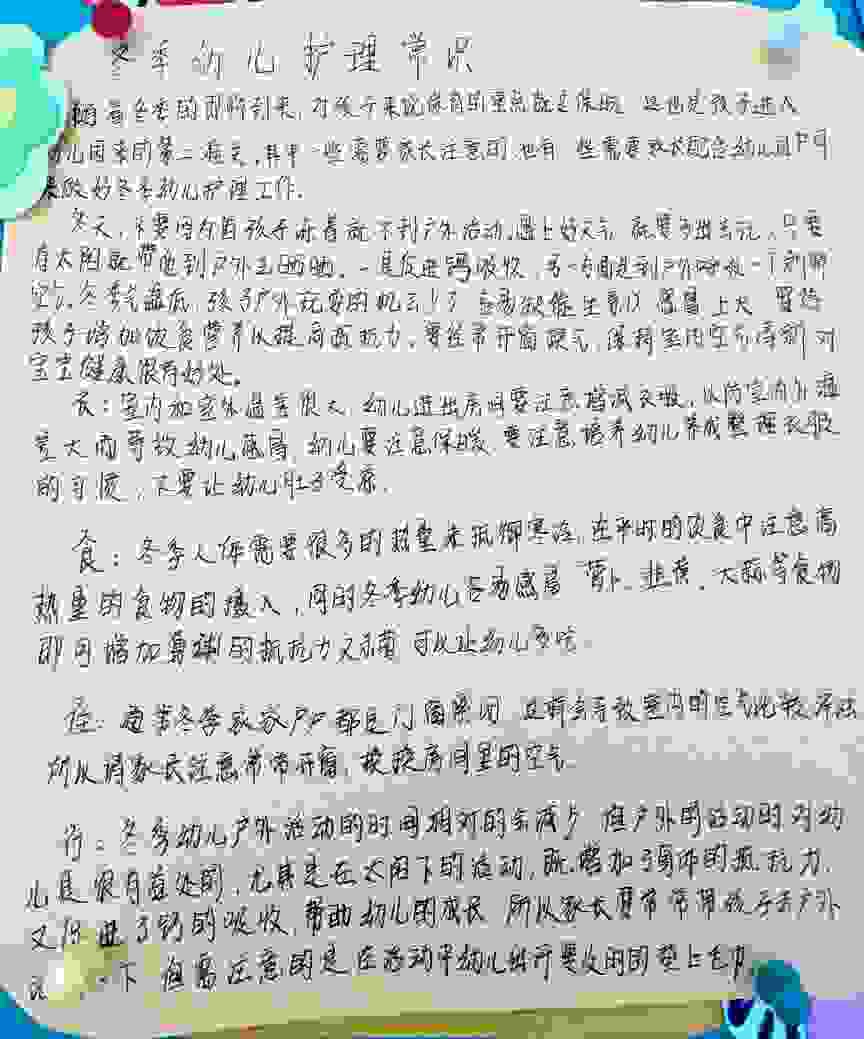 冬季幼儿护理常识
着冬季的即将到来，对孩子来说保育的重点就是保暖 这也是孩子进入
幼儿园来的第二 ，其中一些需要家长注意的，也有一些需要家长配合幼儿园
来做好冬季幼儿护理工作。
冬天，不要因为怕孩子冻着就不到户外活动。遇上好天气 就要多出去玩，只要
有太阳就带他到户外去晒晒。一是促进钙吸收，另一方面是到户外呼吸一下新鲜
空气。冬季气温低，孩子户外玩耍的机会少了 容易缺维生素 上火 要给
孩子增加饮食营养以提高抵抗力。要经常开窗 气，保持室内空气清新 对
宝宝健康很有好处。
衣：室内和室外温差很大，幼儿进出房间要注意增减衣服，以防室内外温
差大而导致幼儿感冒，幼儿要注意保暖，要注意培养幼儿养成整理衣服
的习惯，不要让幼儿肚子受凉。
食：冬季人体需要很多的热量来抵御寒冷，在平时的饮食中注意高
热量的食物的摄入，同时冬季幼儿容易感冒 萝卜、韭 、大蒜等食物
即可增加身体的抵抗力又 可以让幼儿多吃。
住：通常冬季家家户户都是门窗紧闭 这样会导致室内的空气比较浑浊
所以请家长注意常常开窗，换换房间里的空气。
行：冬季幼儿户外活动的时间相对的会减少 但户外的活动时对幼
儿是很有益处的，尤其是在太阳下的活动，既增加了身体的抵抗力，
又促进了钙的吸收，帮助幼儿的成长 所以家长要常常带孩子去户外
一下 但需注意的是在活动中幼儿 开要 的 垫上毛巾